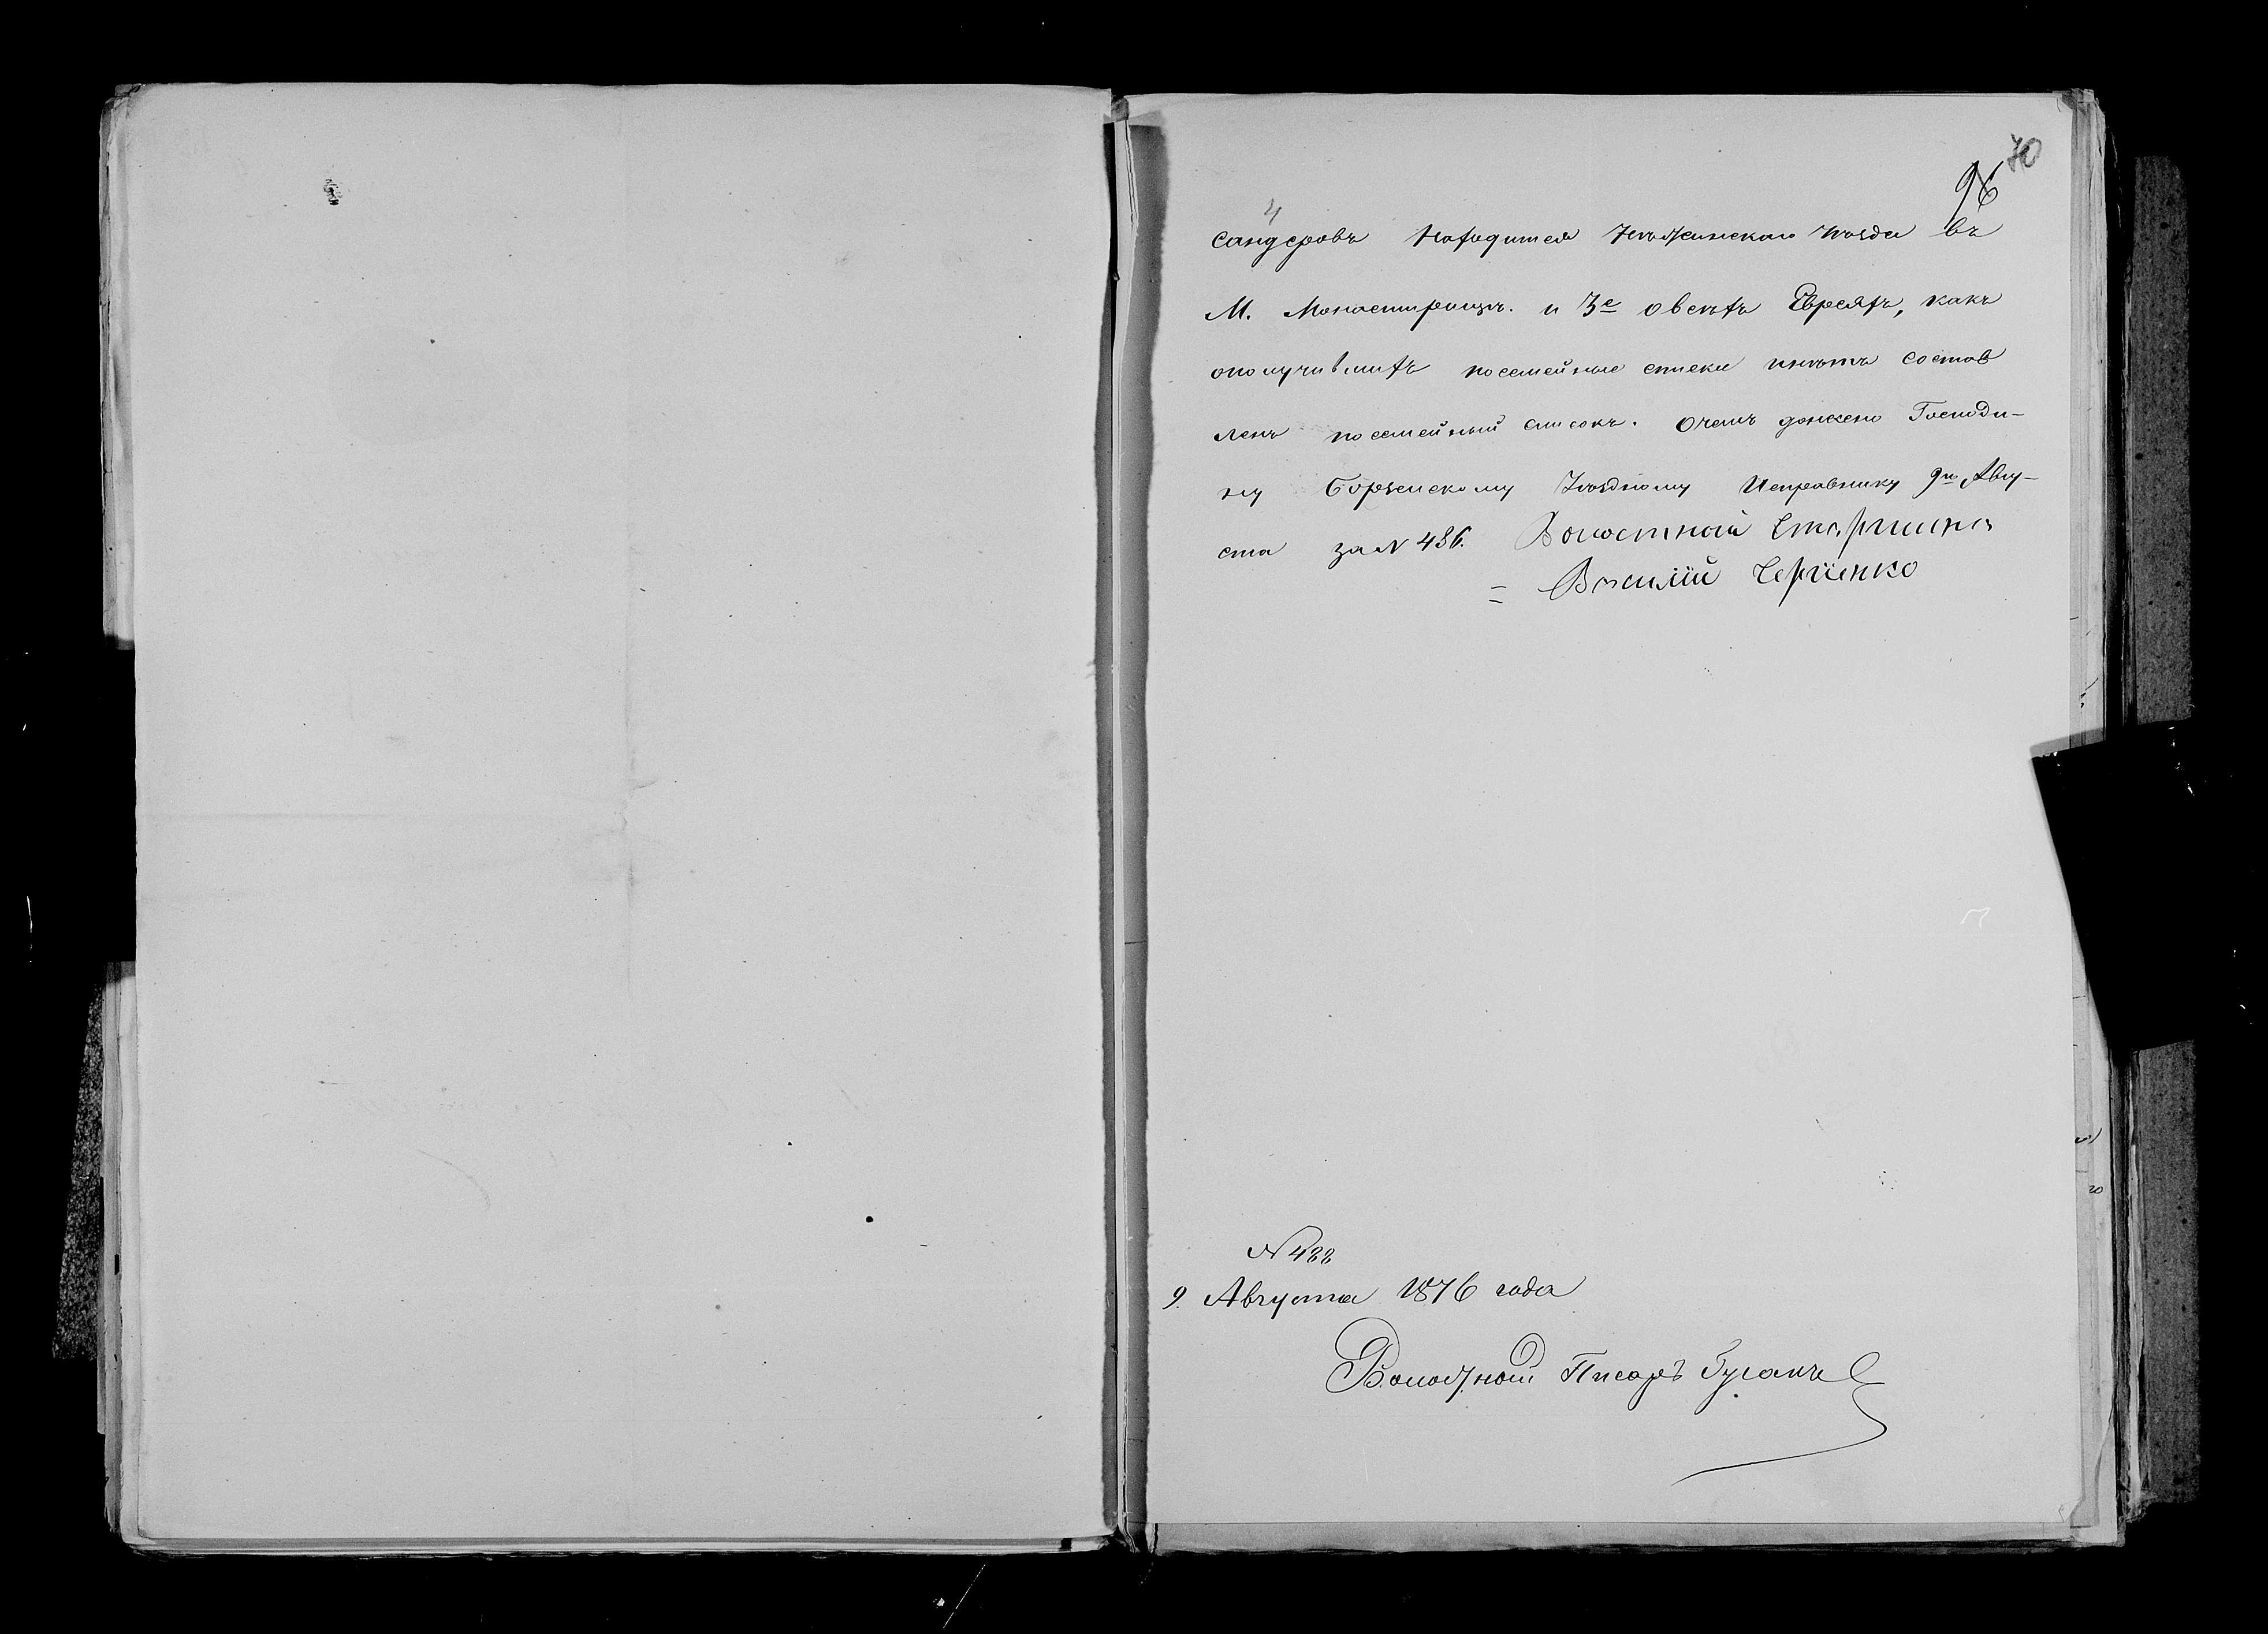 70
96
4
сандеровъ находится Нѣжинскаго уѣзда въ
М. Монастирищѣ. и 3е о всѣхъ Евреяхъ, какъ
ополучившихъ посемейные списки имъ состав
ленъ посемейный списокъ. О чемъ донесено Господи-
ну Борзенскому Уѣздному Исправнику 9го Авгу-
ста за № 486. Волостной Старшина
= Василій
№ 488
9. Августа 1876 года
Волостной Писарь Гусакъ